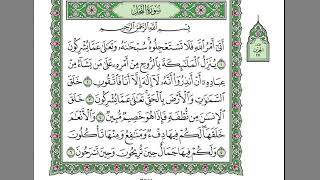 سورة النحل
بسم الله الرحمن الرحيم
أتى أمر الله فلا تستعجلوه سبحنه وتعلى عما يشركون
١ ينزل الملئكة بالروح من أمره على من يشاء من
عباده أن أنذروا أنه لا إله إلا أنا فاتقون ٢ خلق
السموت والأرض بالحق تعلى عما يشركون ٣ خلق
الإنسن من نطفة فإذا هو خصيم مبين ٤ والأنعم
خلقها لكم فيها دفء ومنفع ومنها تأكلون
٥ ولكم فيها جمال حين تريحون وحين تسرحون ٦